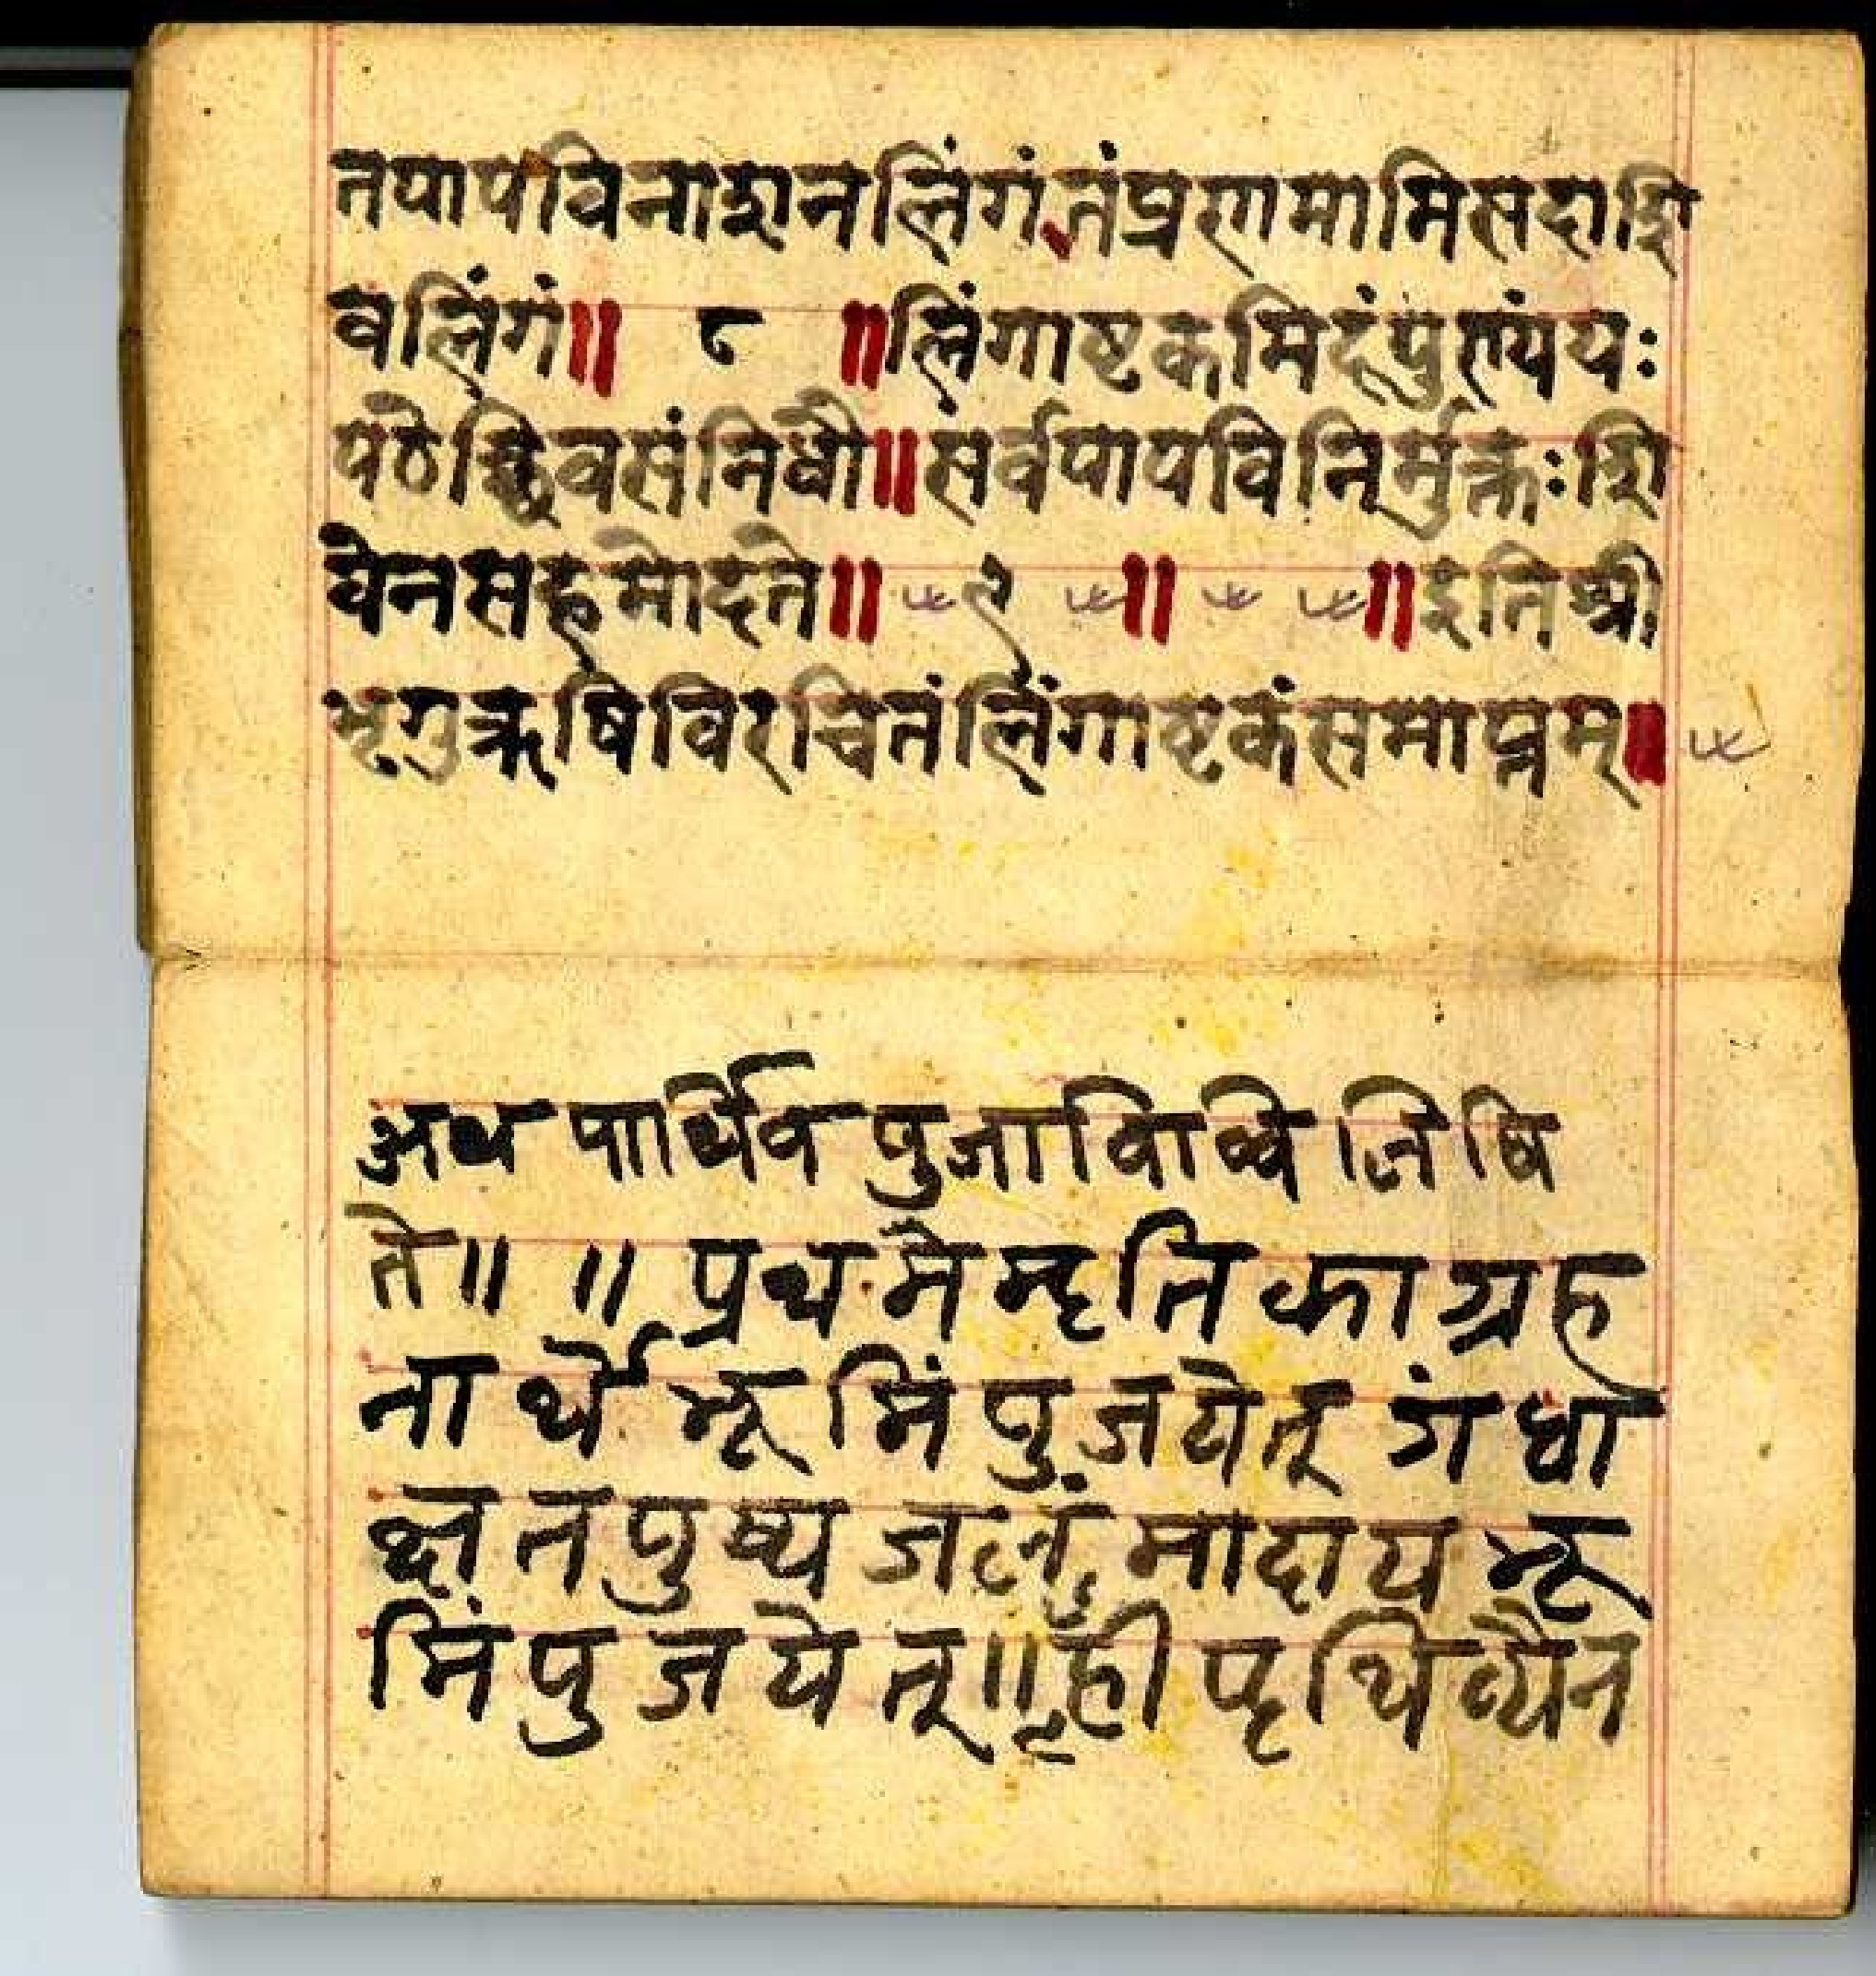 तपापविनाशनलिंगंतंप्रणमामिसदाशि
वलिंगं॥ ८ ॥लिंगाष्टकमिदंपुण्यंयः
पठेच्छिवसंनिधौ॥सर्वपापविनिर्मुक्तःशि
वेनसहमोदते॥ ९ ॥ ॥इतिश्री
भृगुऋषिविरचितंलिंगाष्टकंसमाप्तम्॥
अथ पार्थिव पुजाविधि लिषि
ते॥ ॥ प्रथमे मृतिका ग्रह
नार्थे भूमिं पुजयेत् गंधा
क्षत पुष्प जलं मादाय भू
मिं पुजयेत्॥ ह्री पृथिव्यैन